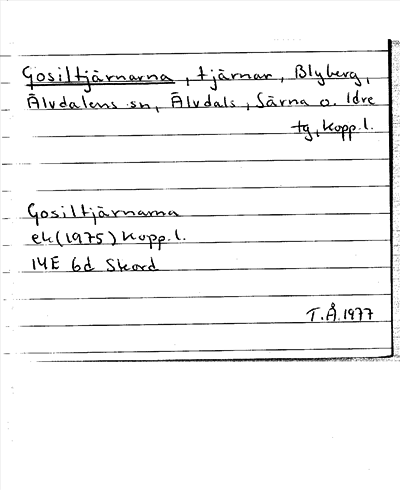 Gosiltjärnarna, tjärnar, Blyberg,
Älvdalens sn, Älvdals, Särna o. Idre
tg, Kopp.l.
Gosiltjärnarna
ek (1975) Kopp.l.
14E 6d Skord
T.Å.1977